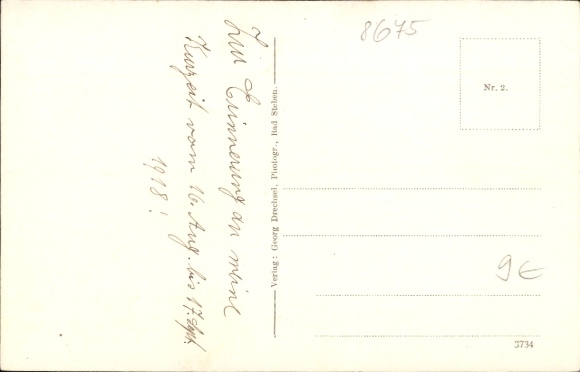 Zur Erinnerung an meine
Kurzeit vom 16. Aug. bis 17. Sept.
1918!
Verlag: Georg Drechsel, Photogr., Bad Steben.
8675
Nr. 2.
9€
3734